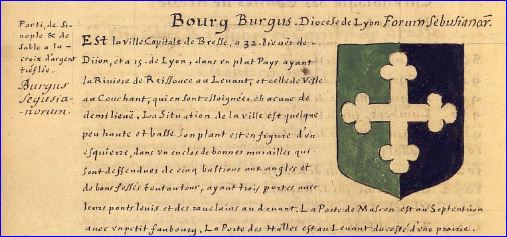 Bourg Burgus. Diocese de Lyon Forum Sebusianor.
Parti, de Si-
nople & de
sable a la
croix d'argent
tréflée.
Burgus
Segusia-
norum.
Est la ville Capitale de Bresse, a 32. lieuës de
Dijon, et a 15. de Lyon, dans vn plat Pays ayant
la Riviere de Reissouce au Leuant, et celle de Vesle
au Couchant, qui en sont esloignées chacune de
demi lieuë. La Situation de la ville est quelque
peu haute et basse son plant est en figure d'vn
esquierre, dans vn enclos de bonnes murailles qui
sont deffendues de cinq bastions aux angles et
de bons fossés tout autour, ayant trois portes auec
leurs ponts leuis et des rauelains au deuant. La Porte de Mascon est au Septentrion
auec vn petit faubourg, La Porte des Halles est au Leuant du costé d'vne prairie.